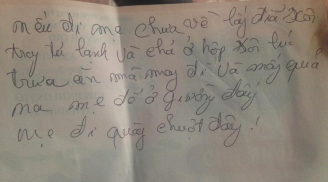 nếu đi mà chưa về lấy đĩa xôi
trong tủ lạnh và chả ở hộp
trưa ăn nhá may đi và mấy quả
na mẹ để ở giường đấy
mẹ đi quậy chuột đây!